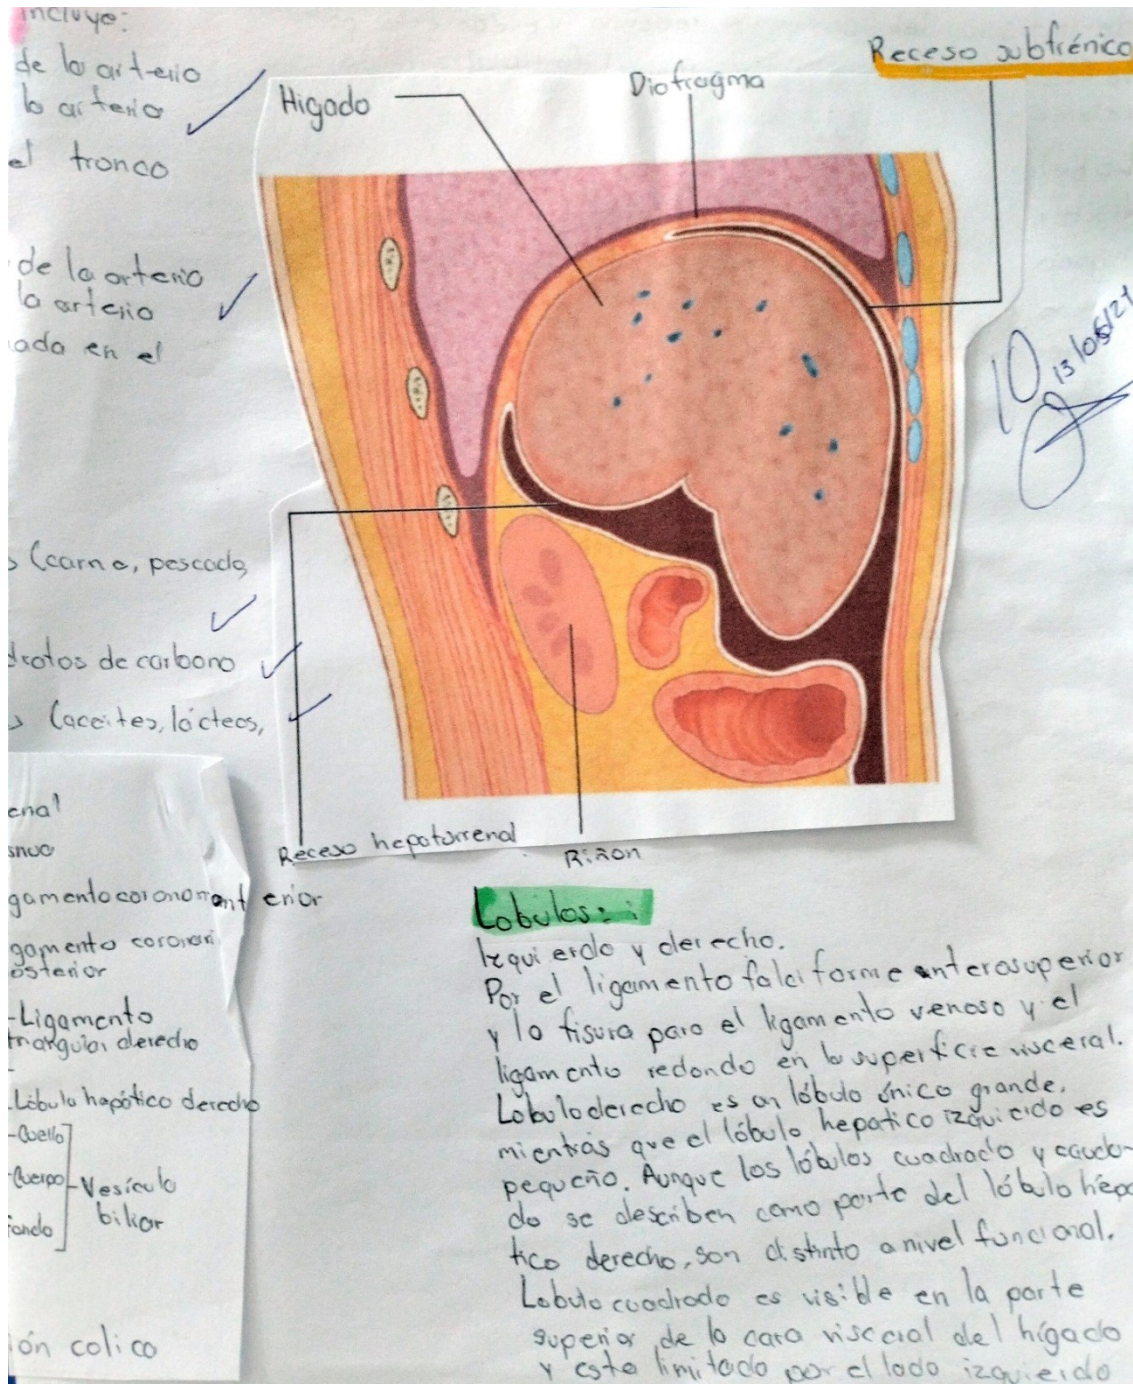 incluye:
de la arteria
la arteria
el tronco
de la arteria
la arteria
ada en el
(carne, pescado,
dratos de carbono
(aceites, lácteos,
Receso subfrénico
Diafragma
Higado
10
13/05/21
Receso hepatorrenal
Riñon
enal
gamento coronari anterior
gamento coronari
osterior
-Ligamento
triangular derecho
-Lóbulo hepático derecho
-Cuello
-Cuerpo
-Vesícula
biliar
fondo
ión colico
Lobulos:
Izquierdo y derecho.
Por el ligamento falciforme anterosuperior
y la fisura para el ligamento venoso y el
ligamento redondo en la superficie visceral.
Lobulo derecho es un lóbulo único grande,
mientras que el lóbulo hepatico izquierdo es
pequeño. Aunque los lóbulos cuadrado y cauda-
do se describen como parte del lóbulo hépa
tico derecho, son distinto a nivel funcional.
Lobulo cuadrado es visible en la parte
superior de la cara visceral del hígado
y esta limitado por el lado izquierdo